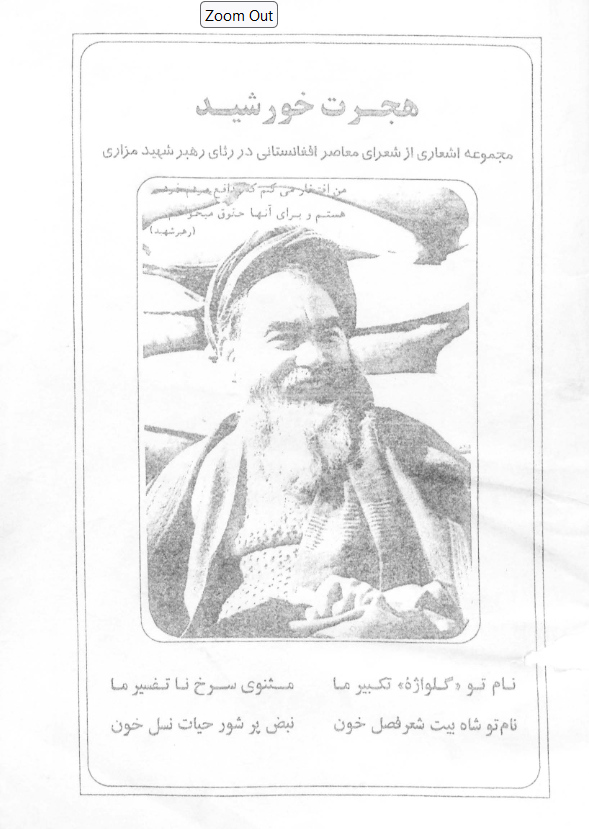 Zoom Out
هجرت خورشید
مجموعه اشعاری از شعرای معاصر افغانستانی در رثای رهبر شهید مزاری
من افتخار می کنم که مدافع مردم خود
هستم و برای آنها حقوق میخواهم
(رهبر شهید)
نام تو «گلواژهٔ» تکبیر ما مثنوی سرخ نا تفسیر ما
نام تو شاه بیت شعر فصل خون نبض پر شور حیات نسل خون